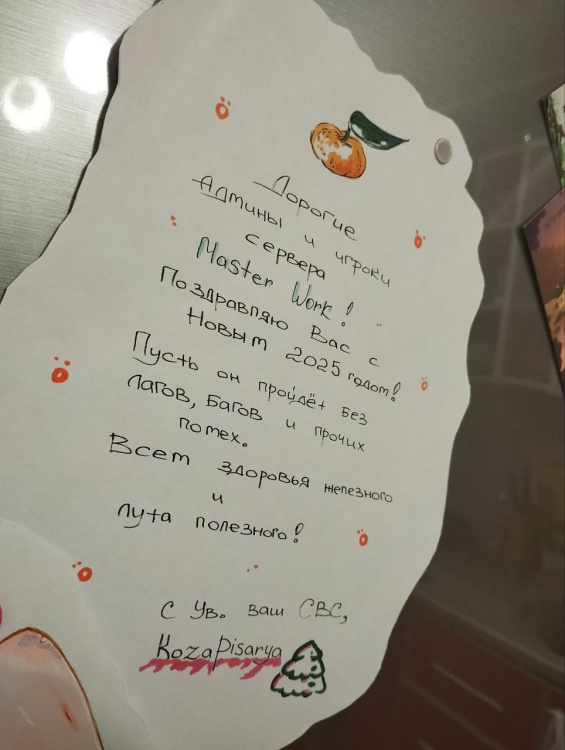 Дорогие
Админы и игроки
сервера
Master Work!
Поздравляю Вас с
Новым 2025 годом!
Пусть он пройдёт без
лагов, багов и прочих
помех.
Всем здоровья железного
и
лута полезного!
С Ув. ваш СВС,
KozaPisarya